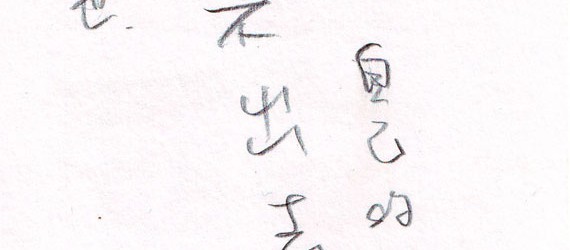 自己的
不出
也.